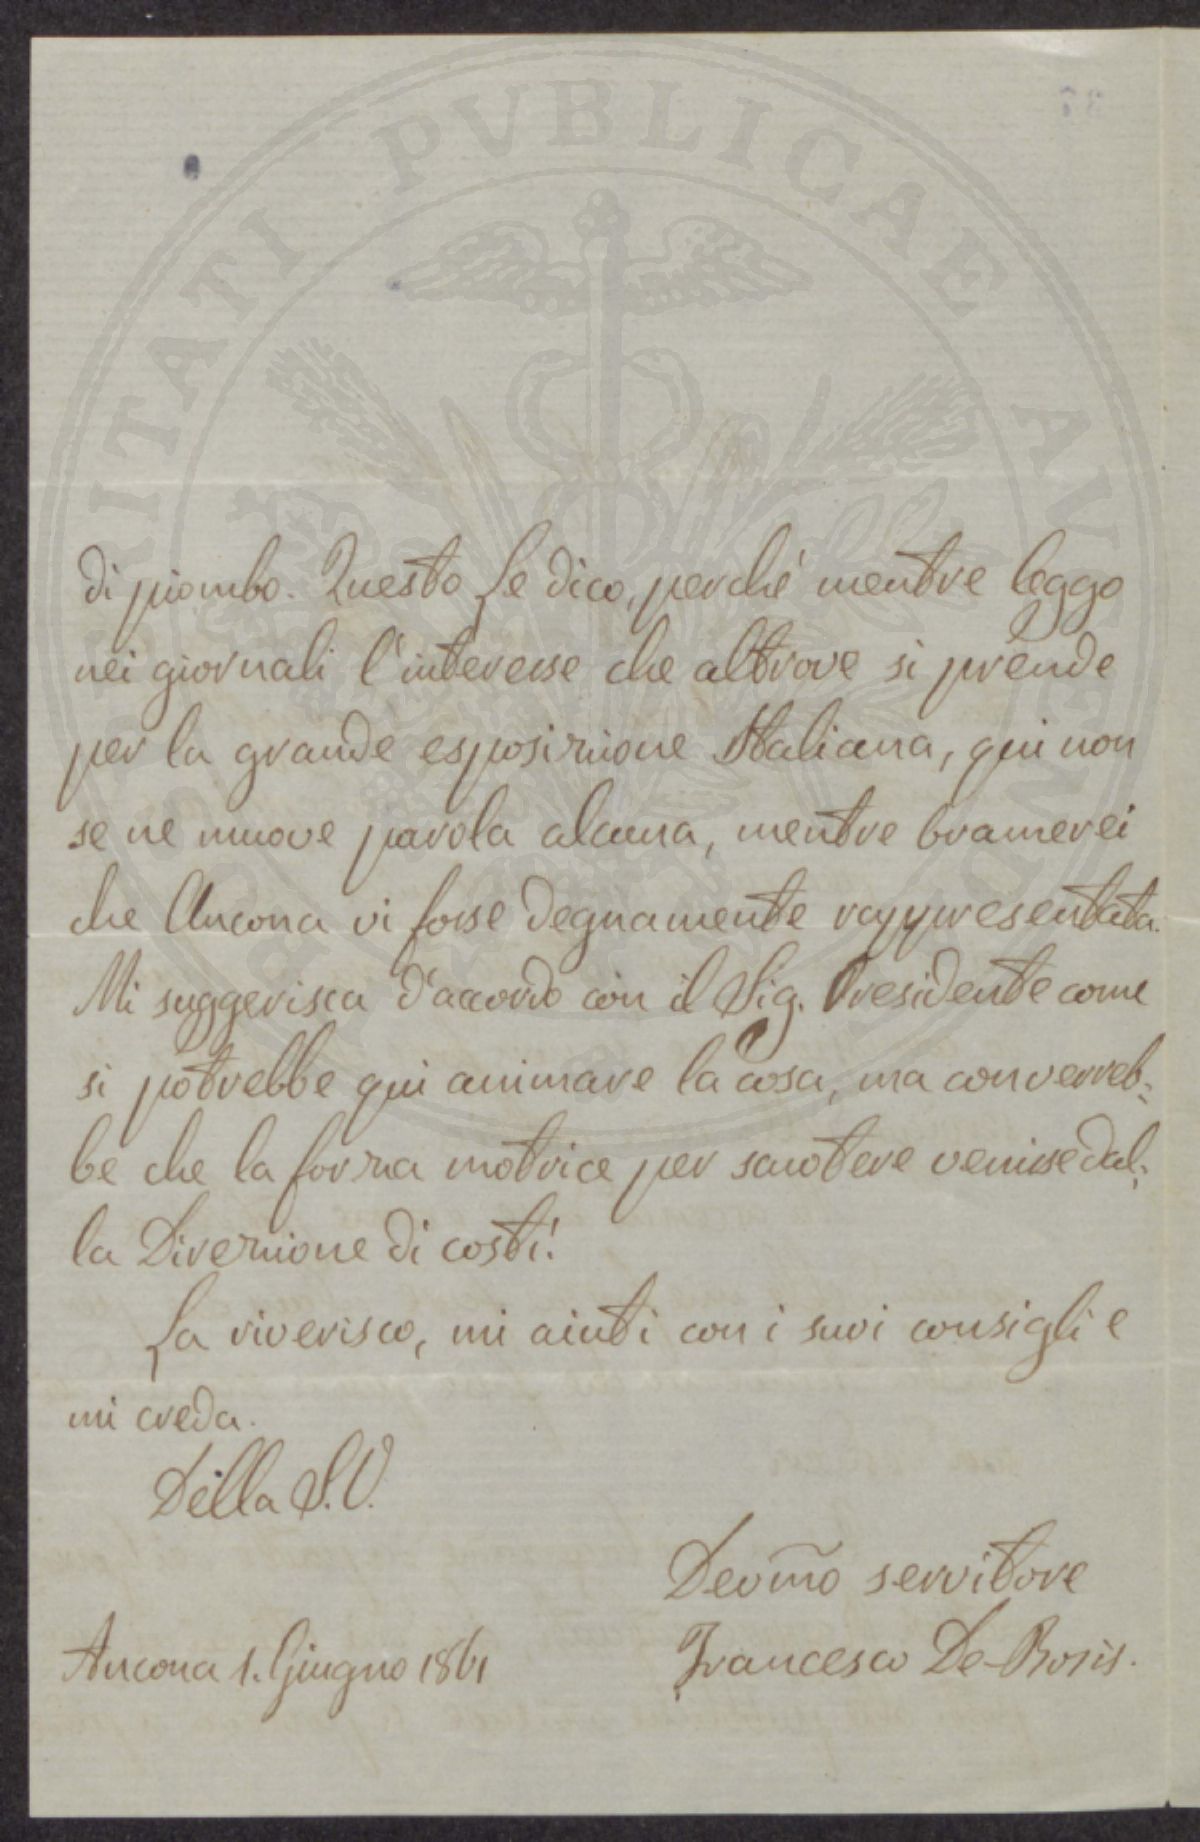 PROSPERITATI PVBLICAE AVGENDAE
di piombo. Questo Le dico, perché mentre leggo
nei giornali l'interesse che altrove si prende
per la grande esposizione Italiana, qui non
se ne muove parola alcuna, mentre bramerei
che Ancona vi fosse degnamente rappresentata.
Mi suggerisca d'accordo con il Sig. Presidente come
si potrebbe qui animare la cosa, ma converreb-
be che la forza motrice per scuotere venisse dal-
la Direzione di costì!
La riverisco, mi aiuti con i suoi consigli e
mi creda.
Della S.V.
Devmo servitore
Ancona 1. Giugno 1861
Francesco De-Bosis.